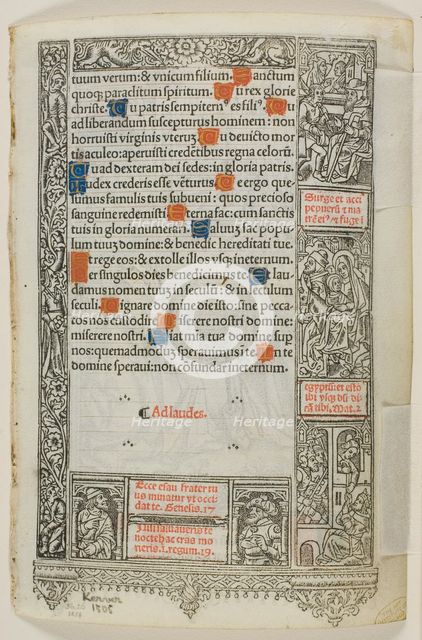 tuum verum: & vnicum filium. Sanctum
quoq; paraclitum spiritum. Tu rex glorie
christe. Tu patris sempitern⁹ es fili⁹. Tu
ad liberandum suscepturus hominem: non
horruisti virginis vterū. Tu deuicto mor
tis aculeo: aperuisti credētibus regna celorū.
Tu ad dexteram dei sedes: in gloria patris.
Iudex crederis esse vēturus. Te ergo que
sumus famulis tuis subueni: quos precioso
sanguine redemisti. Eterna fac: cum sanctis
tuis in gloria numerari. Saluū fac popu
lum tuū domine: & benedic hereditati tue.
Et rege eos: & extolle illos vsq; ineternum.
Per singulos dies benedicimus te. Et lau
damus nomen tuū in seculū: & in seculum
seculi. Dignare domine die isto: sine pecca-
to nos custodire. Miserere nostri domine:
miserere nostri. Fiat mīa tua domine sup
nos: quemadmodū sperauimus ī te. In te
domine speraui: non cōfundar ineternum.
¶ Ad laudes.
Surge et acci
pe puerū & ma
trē ei⁹ & fuge ī
egyptū: et esto
ibi vsq; dū di
cā tibi. Mat. 2
Ecce esau frater tu
us minatur vt occi
dat te. Genesis. 17
Nisi saluaueris te
nocte hac cras mo
rieris. 1. regum. 19.
Kerver
1505
Heritage
Heritage
Heritage
Heritage